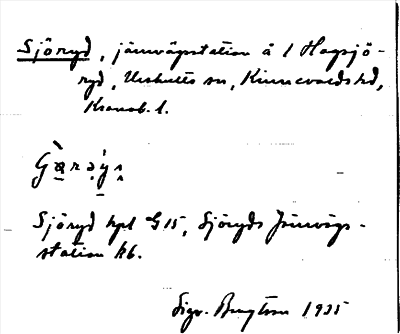 Sjöryd, järnvägsstation å 1 Hagsjö-
ryd, Urshults sn, Kinnevalds hd,
Kronob. l.
Sjöryd hpl G 15, Sjöryds Järnvägs-
station R6.
Sigv. Bengtson 1935